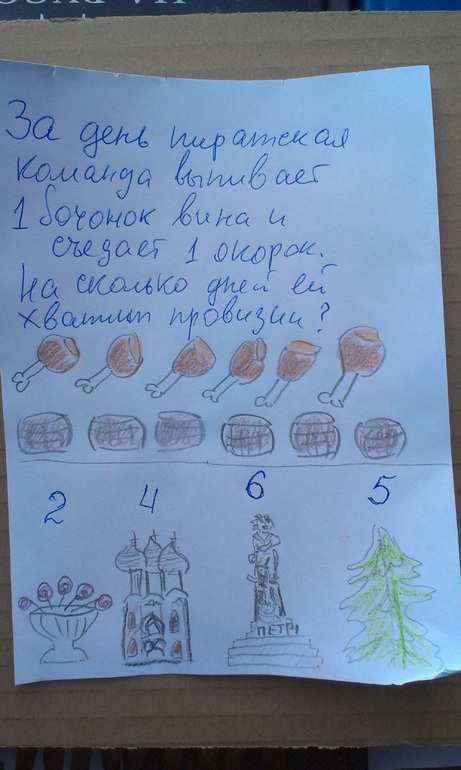 За день пиратская
команда выпивает
1 бочонок вина и
съедает 1 окорок.
На сколько дней ей
хватит провизии?
2 4 6 5
ПЕТР I